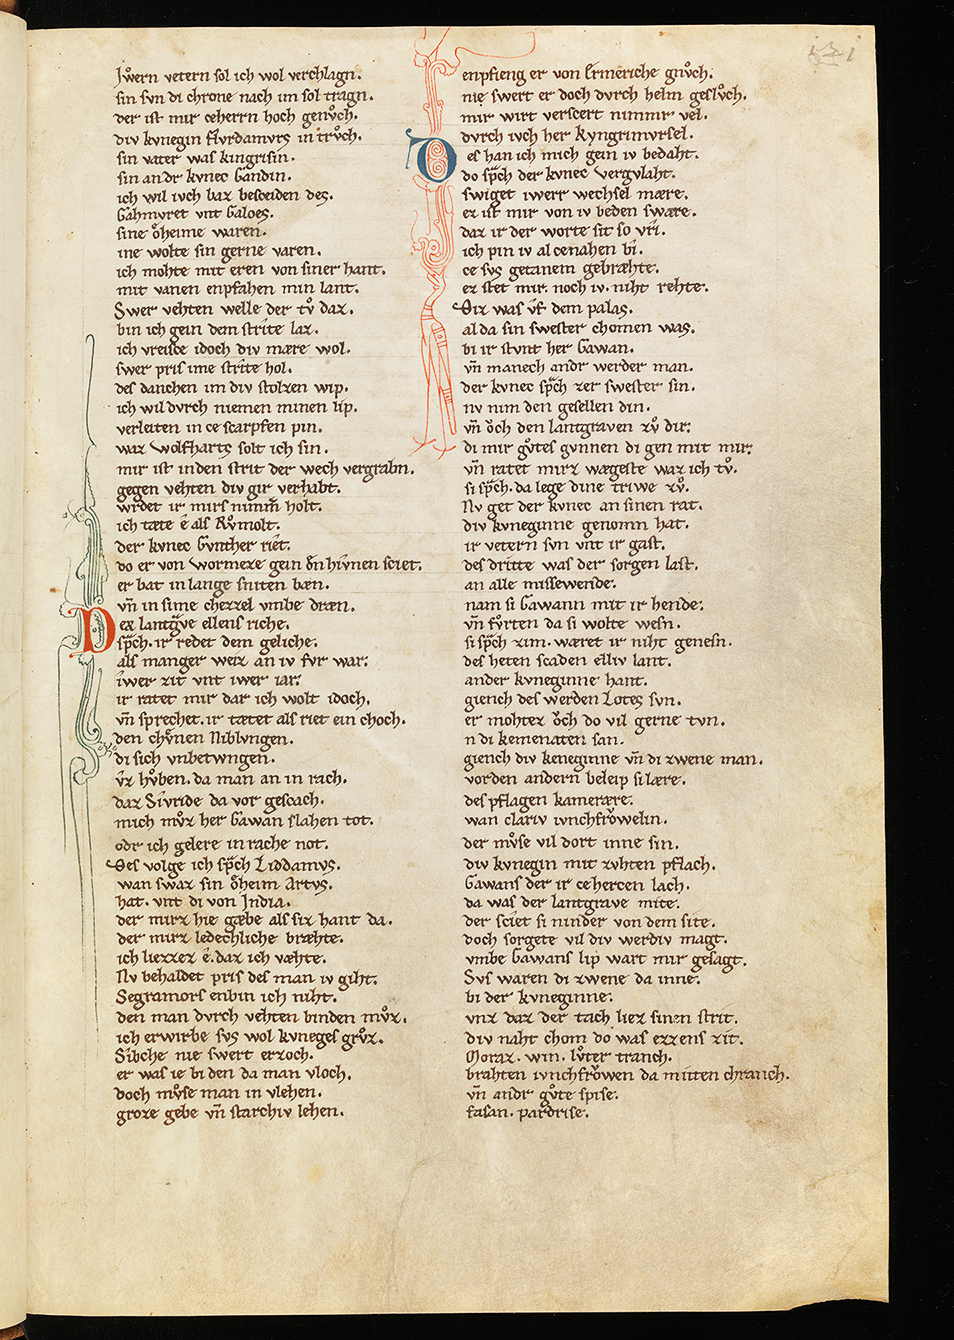 Iwͦern vetern sol ich wol verchlagn.
sin svn di chrone nach im sol tragn.
der ist mir ceherrn hoch genvͦch.
div kvnegin flvrdamvrs in trvͦch.
sin vater was kingrisin.
sin andr kvnec Gandin.
ich wil ivch baz besceiden des.
Gahmvret vnt Galoes.
sine oͤheime waren.
ine wolte sin gerne varen.
ich mohte mit eren von siner hant.
mit vanen enpfahen min lant.
Swer vehten welle der tvͦ daz.
bin ich gein dem strite laz.
ich vreisce idoch div mære wol.
swer pris ime strite hol.
des danchen im div stolzen wip.
ich wil dvrch niemen minen lip.
verleiten in ce scarpfen pin.
waz wolfharts solt ich sin.
mir ist inden strit der wech vergrabn.
gegen vehten div gir verhabt.
wrdet ir mirs nimm̄ holt.
ich tæte ê als Rvͦmolt.
der kvnec Gvnther riet.
do er von wormeze gein den hivnen sciet.
er bat in lange sniten bæn.
vn̄ in sime chezzel vmbe dræn.
Dez lantgͣve ellens riche.
spͣch. ir redet dem geliche.
als manger weiz an iv fvr war.
iwer zit vnt iwer iar.
ir ratet mir dar ich wolt idoch.
vn̄ sprechet. ir tætet als riet ein choch.
den chvͤnen Niblvngen.
di sich vnbetwngen.
vz hvͦben. da man an in rach.
daz Sivride da vor gescach.
mich mvͦz her Gawan slahen tot.
odr ich gelere in rache not.
Des volge ich spͣch Liddamvs.
wan swaz sin oͤheim Artvs.
hat. vnt di von India.
der mirz hie gæbe als siz hant da.
der mirz ledechliche bræhte.
ich liezzez ê. daz ich væhte.
Nv behaldet pris des man iv giht.
Segramors enbin ich niht.
den man dvrch vehten binden mvͦz.
ich erwirbe svs wol kvneges grvͦz.
Sibche nie swert erzoch.
er was ie bi den da man vloch.
doch mvͦse man in vlehen.
groze gebe vn̄ starchiv lehen.
enpfieng er von Ermeriche gnvͦch.
nie swert er doch dvrch helm geslvͦch.
mir wirt verscert nimmir vel.
dvrch ivch her kyngrimvrsel.
Des han ich mich gein iv bedaht.
do spͣch der kvnec vergvlaht.
swiget iwerr wechsel mære.
ez ist mir von iv beden swære.
daz ir der worte sit so vri.
ich pin iv al cenahen bi.
ce svs getanem gebræhte.
ez stet mir. noch iv. niht rehte.
Diz was vf dem palas.
al da sin swester chomen was.
bi ir stvnt her Gawan.
vn̄ manech andr werder man.
der kvnec spͣch zer swester sin.
nv nim den gesellen din.
vn̄ oͮch den lantgraven zvͦ dir.
di mir gvͦtes gvnnen di gen mit mir.
vn̄ ratet mirz wægeste waz ich tvͦ.
si spͣch. da lege dine triwe zvͦ.
Nv get der kvnec an sinen rat.
div kvneginne genomn hat.
ir vetern svn vnt ir gast.
des dritte was der sorgen last.
an alle missewende.
nam si Gawann mit ir hende.
vn̄ fvͦrten da si wolte wesn.
si spͣch zim. wæret ir niht genesn.
des heten scaden elliv lant.
ander kvneginne hant.
giench des werden Lotes svn.
er mohtez oͮch do vil gerne tvn.
n di kemenaten san.
giench div keneginne vn̄ di zwene man.
vorden andern beleip si lære.
des pflagen kamerære.
wan clariv ivnchfroͮwelin.
der mvͦse vil dort inne sin.
div kvnegin mit zvhten pflach.
Gawans der ir ceherce lach.
da was der lantgrave mite.
der sciet si ninder von dem site.
doch sorgete vil div werdiv magt.
vmbe Gawans lip wart mir gesagt.
Svs waren di zwene da inne.
bi der kvneginne.
vnz daz der tach liez sinen strit.
div naht chom do was ezzens zit.
Moraz. win. lvͦter tranch.
brahten ivnchfroͮwen da mitten chranch.
vn̄ andr gvͦte spise.
fasan. pardrise.